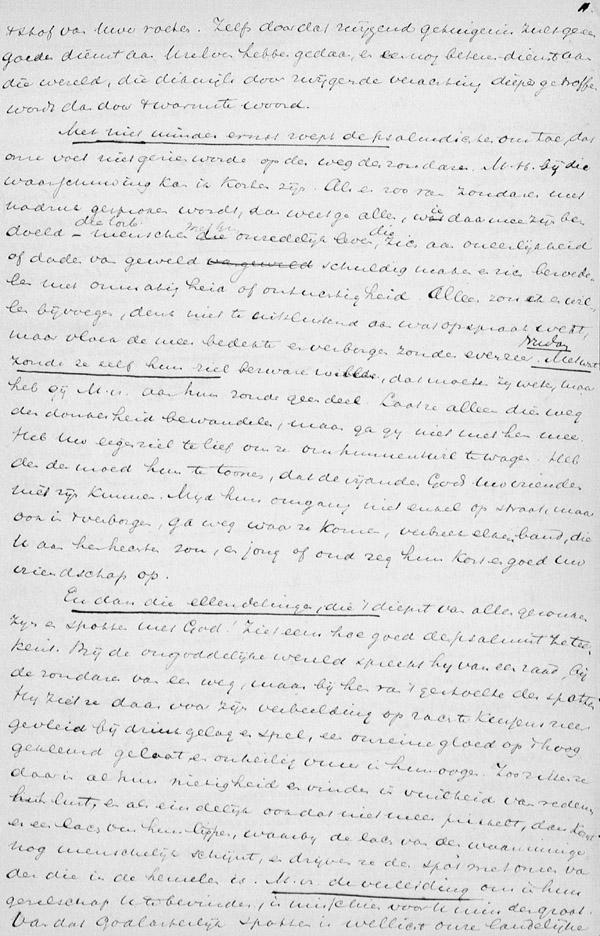 't stof van Uwe voeten. Zelfs door dat zwijgend getuigenis zult ge een
goeden dienst aan Uzelven hebben gedaan, en een nog beteren dienst aan
die wereld, die dikwijls door zwijgende verachting dieper getroffen
wordt dan door 't warmste woord.
Met niet minder ernst roept de psalmdichter ons toe, dat
onze voet niet gezien worde op den weg der zondaren. M.H. bij die
waarschuwing kan ik korter zijn. Als er zoo van zondaren met
nadruk gesproken wordt, dan weet ge allen, wie daarmee zijn be
doeld - menschen die onzedelijk leven, die zich aan oneerlijkheid
of daden van geweld van geweld schuldig maken en zich bezoede-
len met onmatigheid of ontuchtigheid. Alleen zou ik er wil-
len bijvoegen, denk niet te uitsluitend aan wat opspraak wekt,
maar vloek de meer bedekte en verborgen zonde evenzeer. Met wat
zonde ze zelf hun ziel bezwaren wilden, dat moeten zij weten, maar
heb gij M.v. aan hun zonde geen deel. Laat ze alleen dien weg
der donkerheid bewandelen, maar ga gij niet met hen mee.
Heb Uw eigen ziel te lief om ze om hunnentwil te wagen. Heb
den moed hun te toonen, dat de vijanden Gods Uw vrienden
niet zijn kunnen. Mijd hun omgang niet enkel op straat, maar
ook in 't verborgen, ga weg waar ze komen, verbreek elken band, die
U aan hen hechten zou, en jong of oud zeg hun kort en goed Uw
vriendschap op.
En dan die ellendelingen, die 't diepst van allen gezonken
zijn en spotten met God! Ziet eens hoe goed de psalmist ze tee
kent. Bij de ongoddelijke wereld spreekt hij van een raad, bij
de zondaren van een weg, maar bij hen van 't gestoelte der spotters
Hij ziet ze daar voor zijn verbeelding op zachte kussens neer
gevleid bij drinkgelag en spel, een onreine gloed op 't hoog
gekleurd gelaat, en onheilig vuur in hun oogen. Zoo zitten ze
daar in al hun nietigheid en vinden in vuilheid van redenen
hun lust, en als eindelijk ook dat niet meer prikkelt, dan komt
er een lach om hun lippen, waarbij de lach van den waanzinnige
nog menschelijk schijnt, en drijven ze den spot met onzen Va
der die in de hemelen is. M.v. de verleiding om in hun
gezelschap U te bevinden, is misschien voor U minder groot.
Van dat Godslasterlijk spotten is wellicht onze landelijke